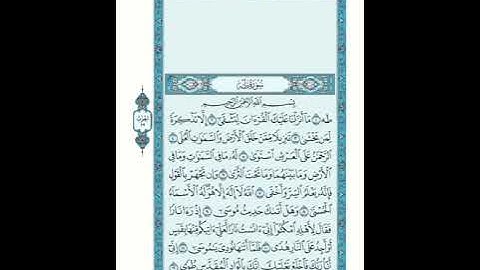 سورة طه
بسم الله الرحمن الرحيم
طه ١ ما أنزلنا عليك القرءان لتشقى ٢ إلا تذكرة
لمن يخشى ٣ تنزيلا ممن خلق الأرض والسموات العلى ٤
الرحمن على العرش استوى ٥ له ما في السموات وما في
الأرض وما بينهما وما تحت الثرى ٦ وإن تجهر بالقول
فإنه يعلم السر وأخفى ٧ الله لا إله إلا هو له الأسماء
الحسنى ٨ وهل أتىك حديث موسى ٩ إذ رءا نارا
فقال لأهله امكثوا إني ءانست نارا لعلي ءاتيكم منها بقبس
أو أجد على النار هدى ١٠ فلما أتىها نودي يموسى ١١ إني
أنا ربك فاخلع نعليك إنك بالواد المقدس طوى ١٢